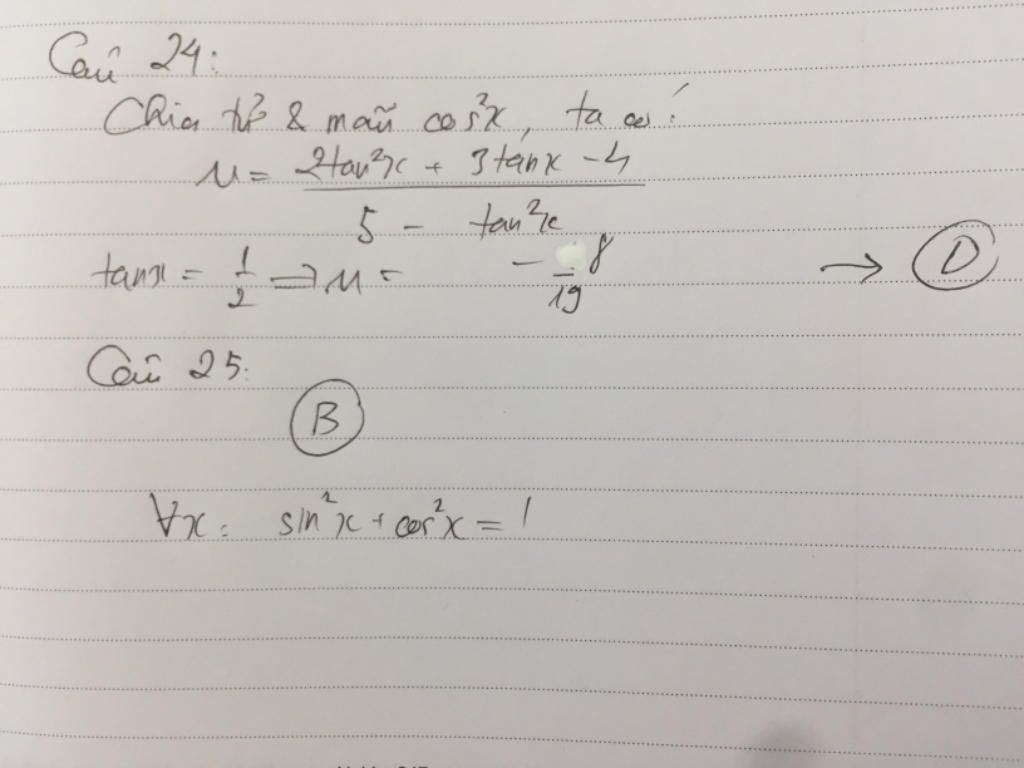 Câu 24:
Chia tử & mẫu cos²x, ta có:
M = (2tan²x + 3tanx - 4) / (5 - tan²x)
tanx = 1/2 ⇒ M = -8/19 → D
Câu 25:
B
∀x: sin²x + cos²x = 1